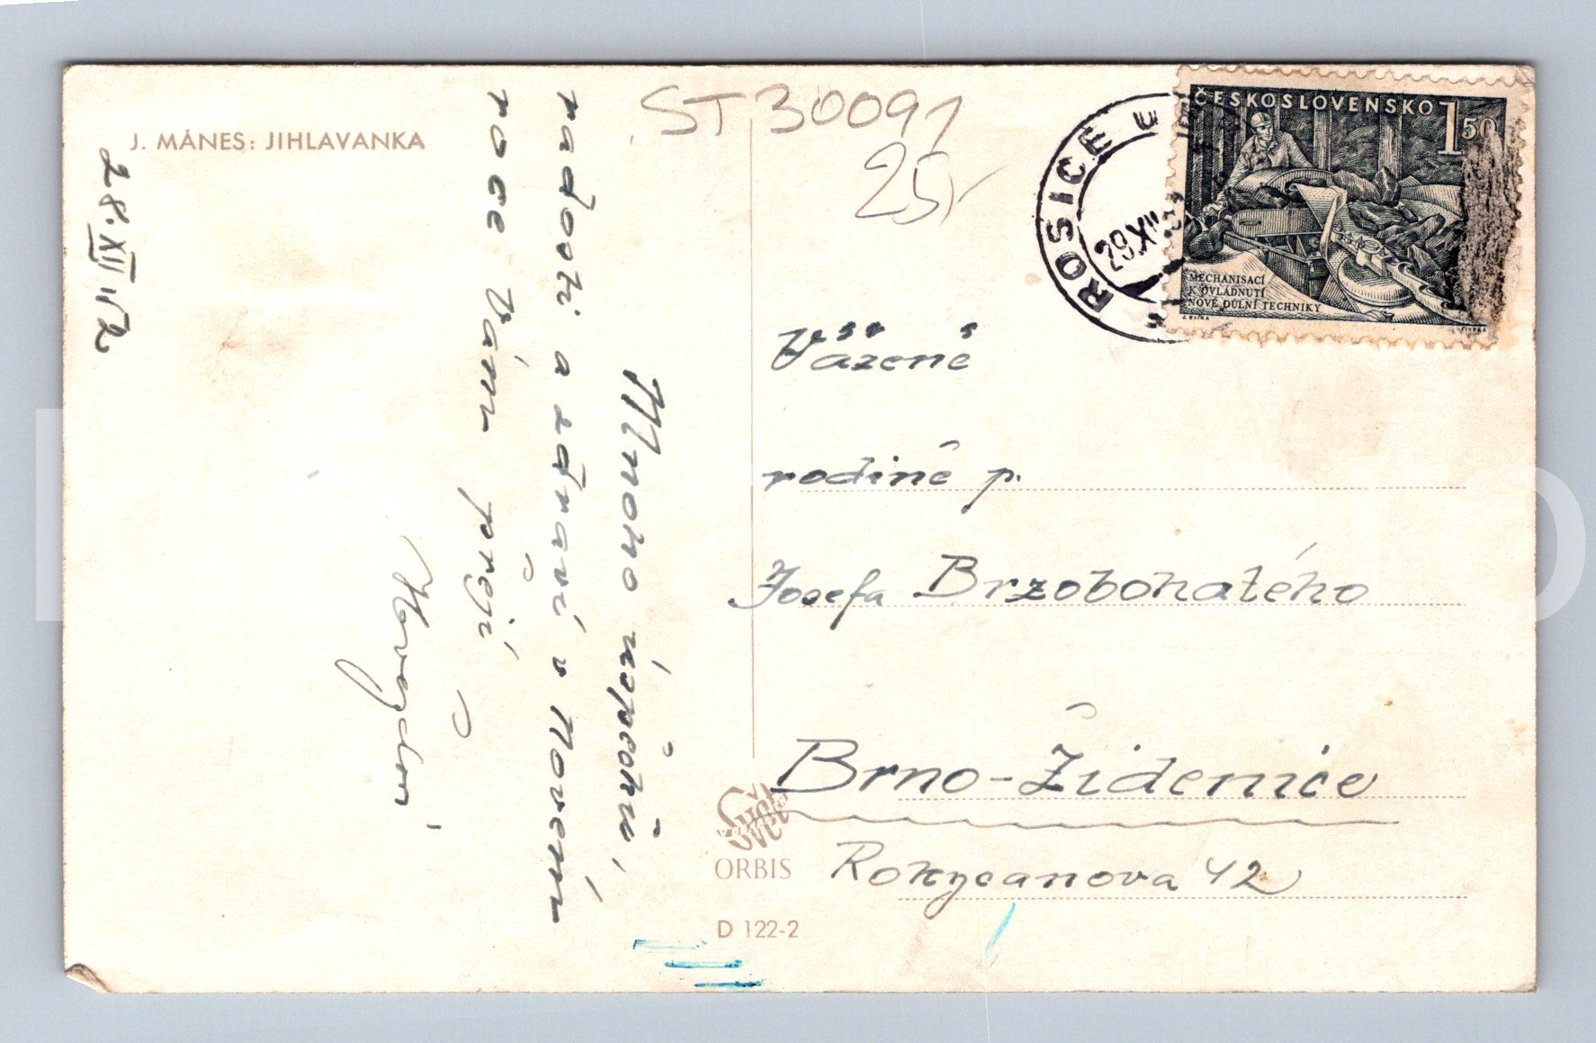 J. MÁNES: JIHLAVANKA
28. XII. 52
Mnoho úspěchů,
radosti a zdraví v Novém
roce Vám přejí
ST 30091
25,-
ROSICE U
29.XII
ČESKOSLOVENSKO
1 50
MECHANISACÍ
K OVLÁDNUTÍ
NOVÉ DŮLNÍ TECHNIKY
Vážené
rodině p.
Josefa Brzobohatého
Brno-Židenice
Rokycanova 42
ORBIS
D 122-2